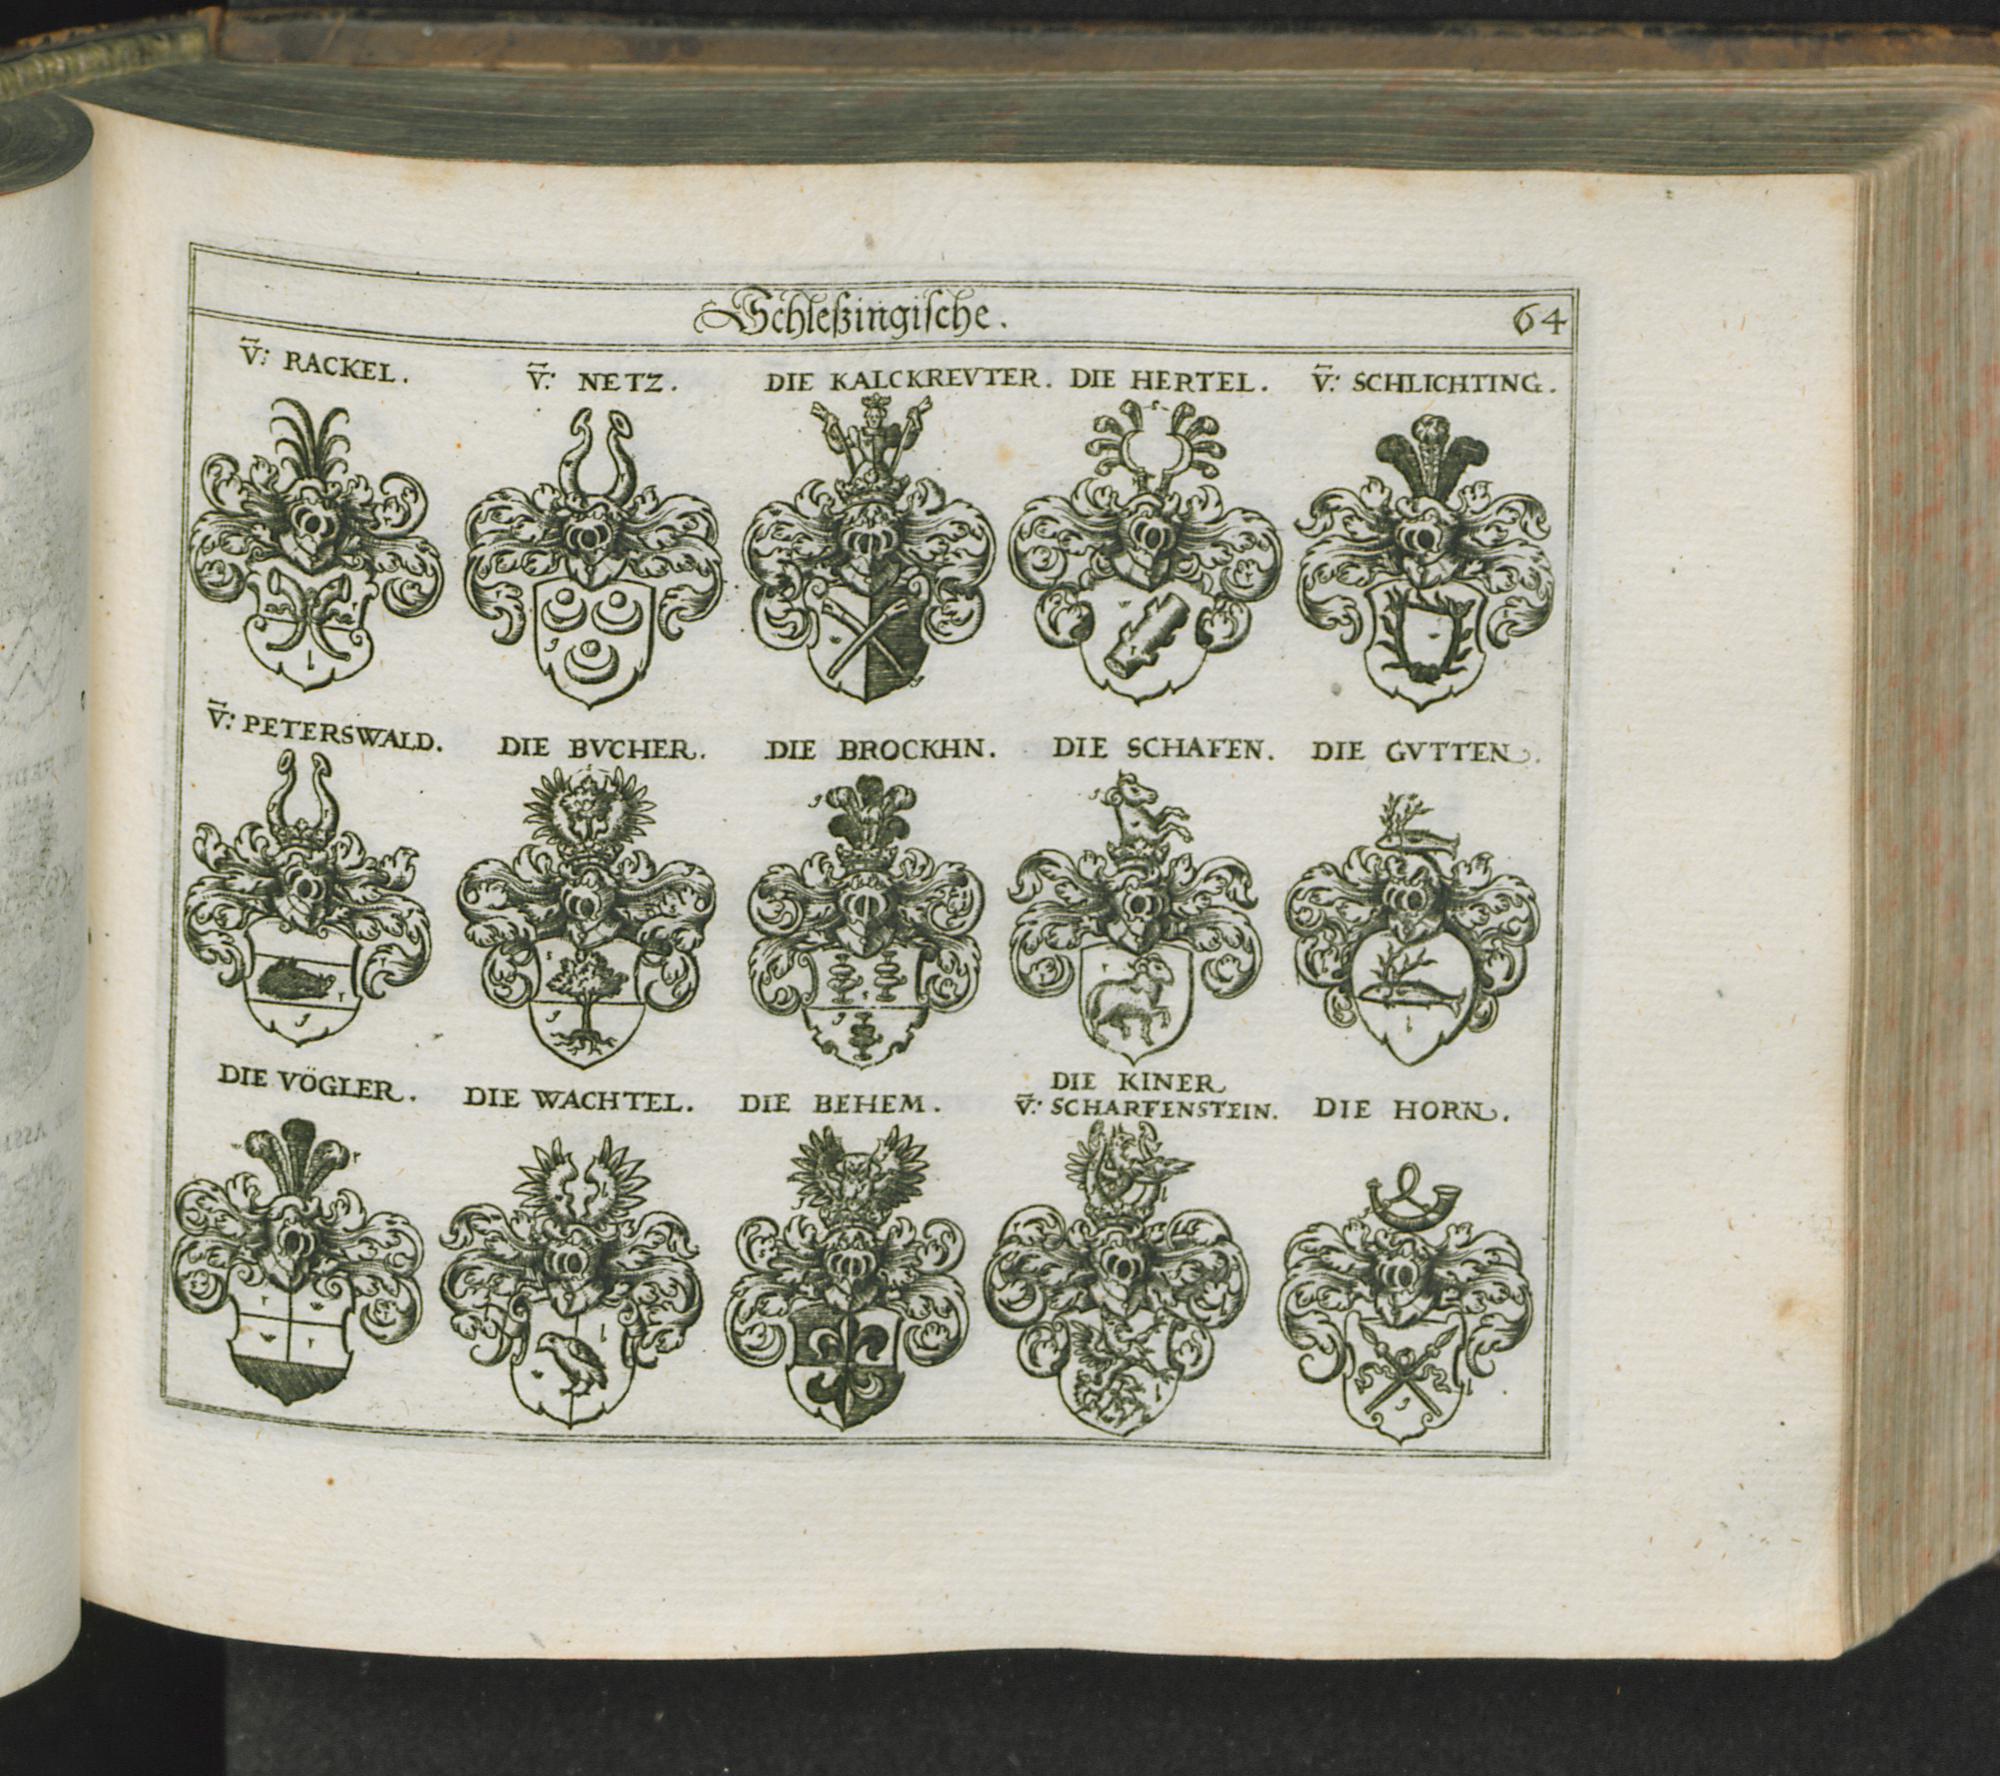 Schleßingische.
64
V̄: RACKEL.
V̄: NETZ.
DIE KALCKREVTER.
DIE HERTEL.
V̄: SCHLICHTING.
V̄: PETERSWALD.
DIE BVCHER.
DIE BROCKHN.
DIE SCHAFEN.
DIE GVTTEN.
DIE VÖGLER.
DIE WACHTEL.
DIE BEHEM.
DIE KINER
V̄: SCHARFENSTEIN.
DIE HORN.